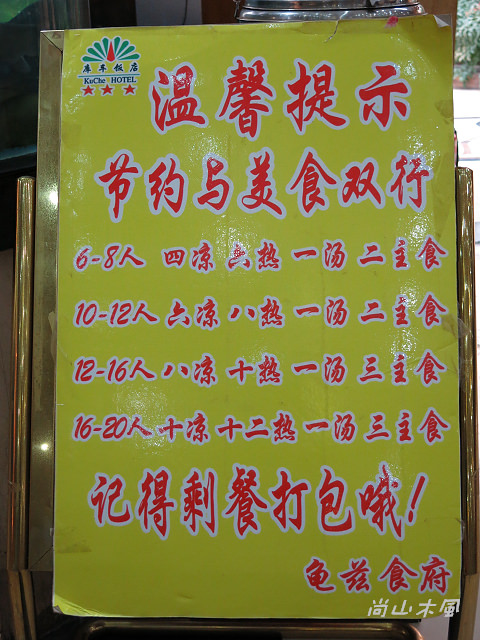 库车饭店
KuChe HOTEL
温馨提示
节约与美食双行
6-8人 四凉 六热 一汤 二主食
10-12人 六凉 八热 一汤 二主食
12-16人 八凉 十热 一汤 三主食
16-20人 十凉 十二热 一汤 三主食
记得剩餐打包哦!
龟兹食府
尚山木風